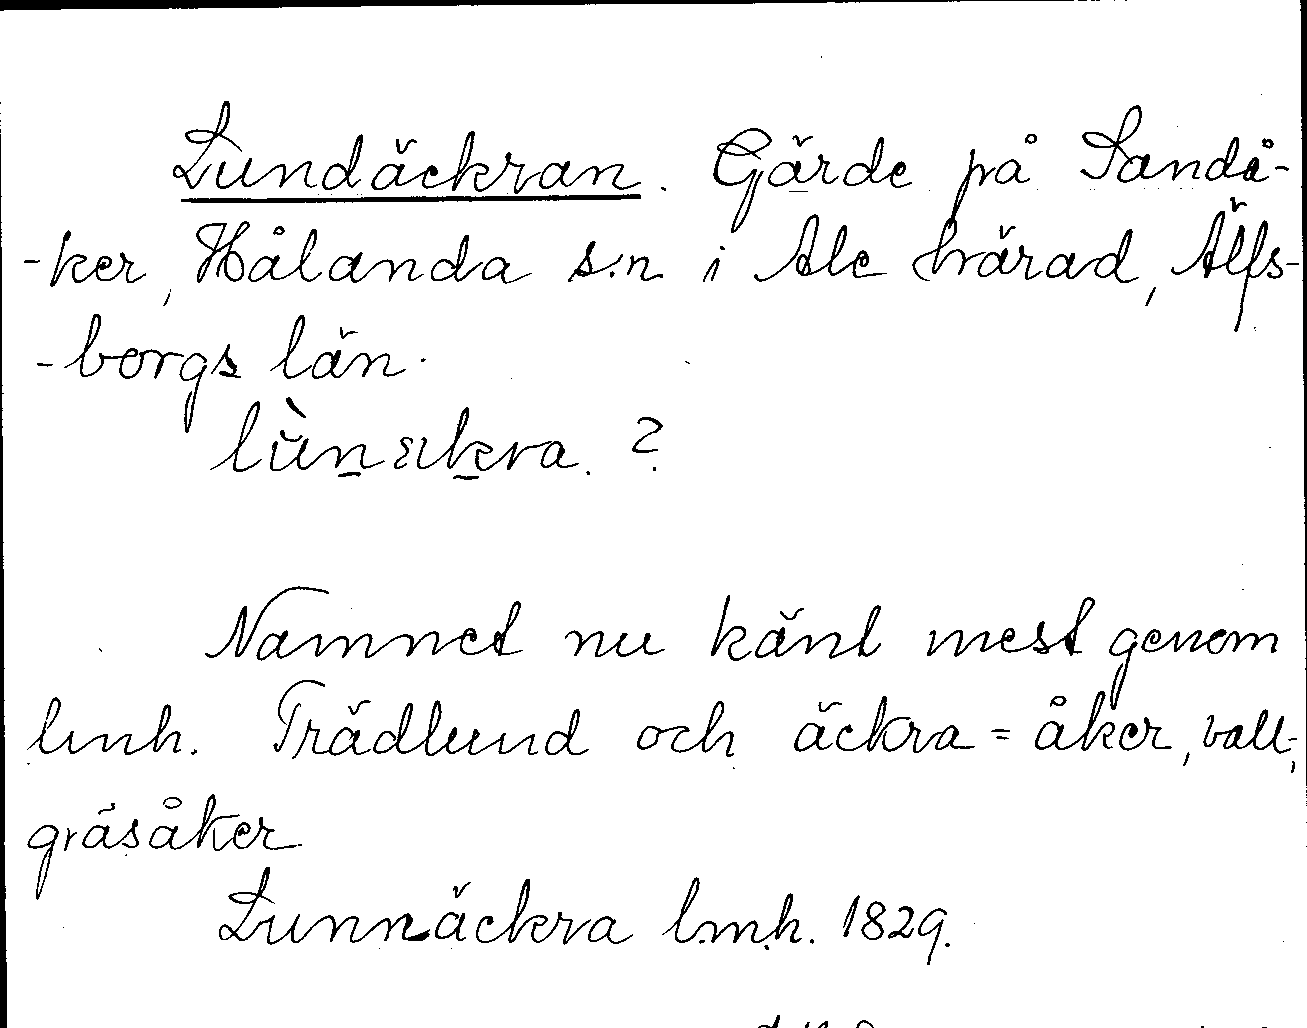 Lundäckran. Gärde på Sandå-
-ker, Hålanda s:n i Ale härad, Älfs-
-borgs län.
lùnækra. ?
Namnet nu känt mest genom
lmh. Trädlund och äckra = åker, vall-,
gräsåker
Lunnäckra l.m.h. 1829.